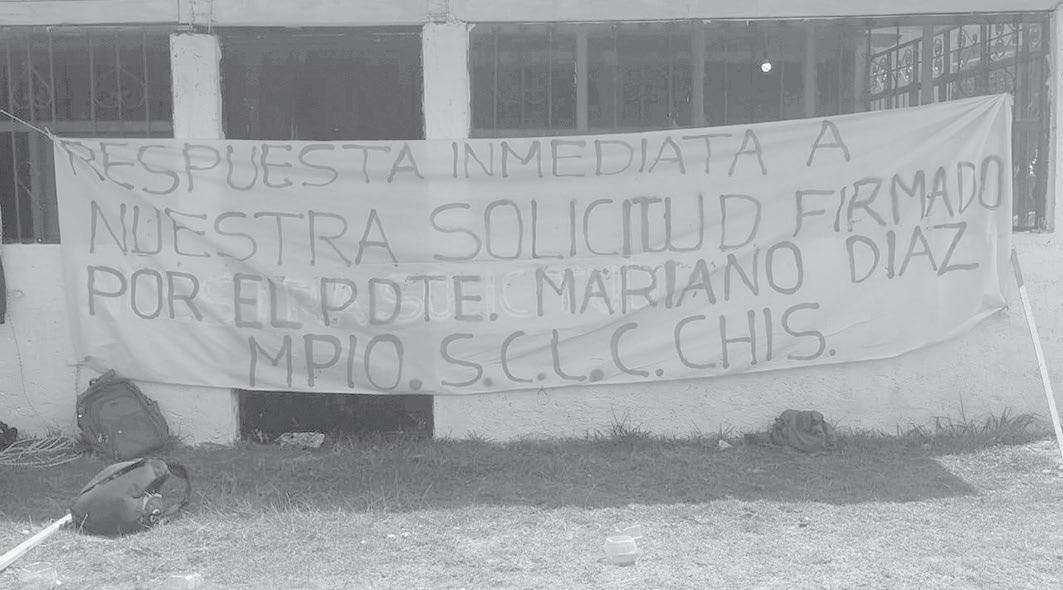 RESPUESTA INMEDIATA A
NUESTRA SOLICITUD FIRMADO
POR EL PDTE. MARIANO DIAZ
MPIO. S.C.L.C. CHIS.